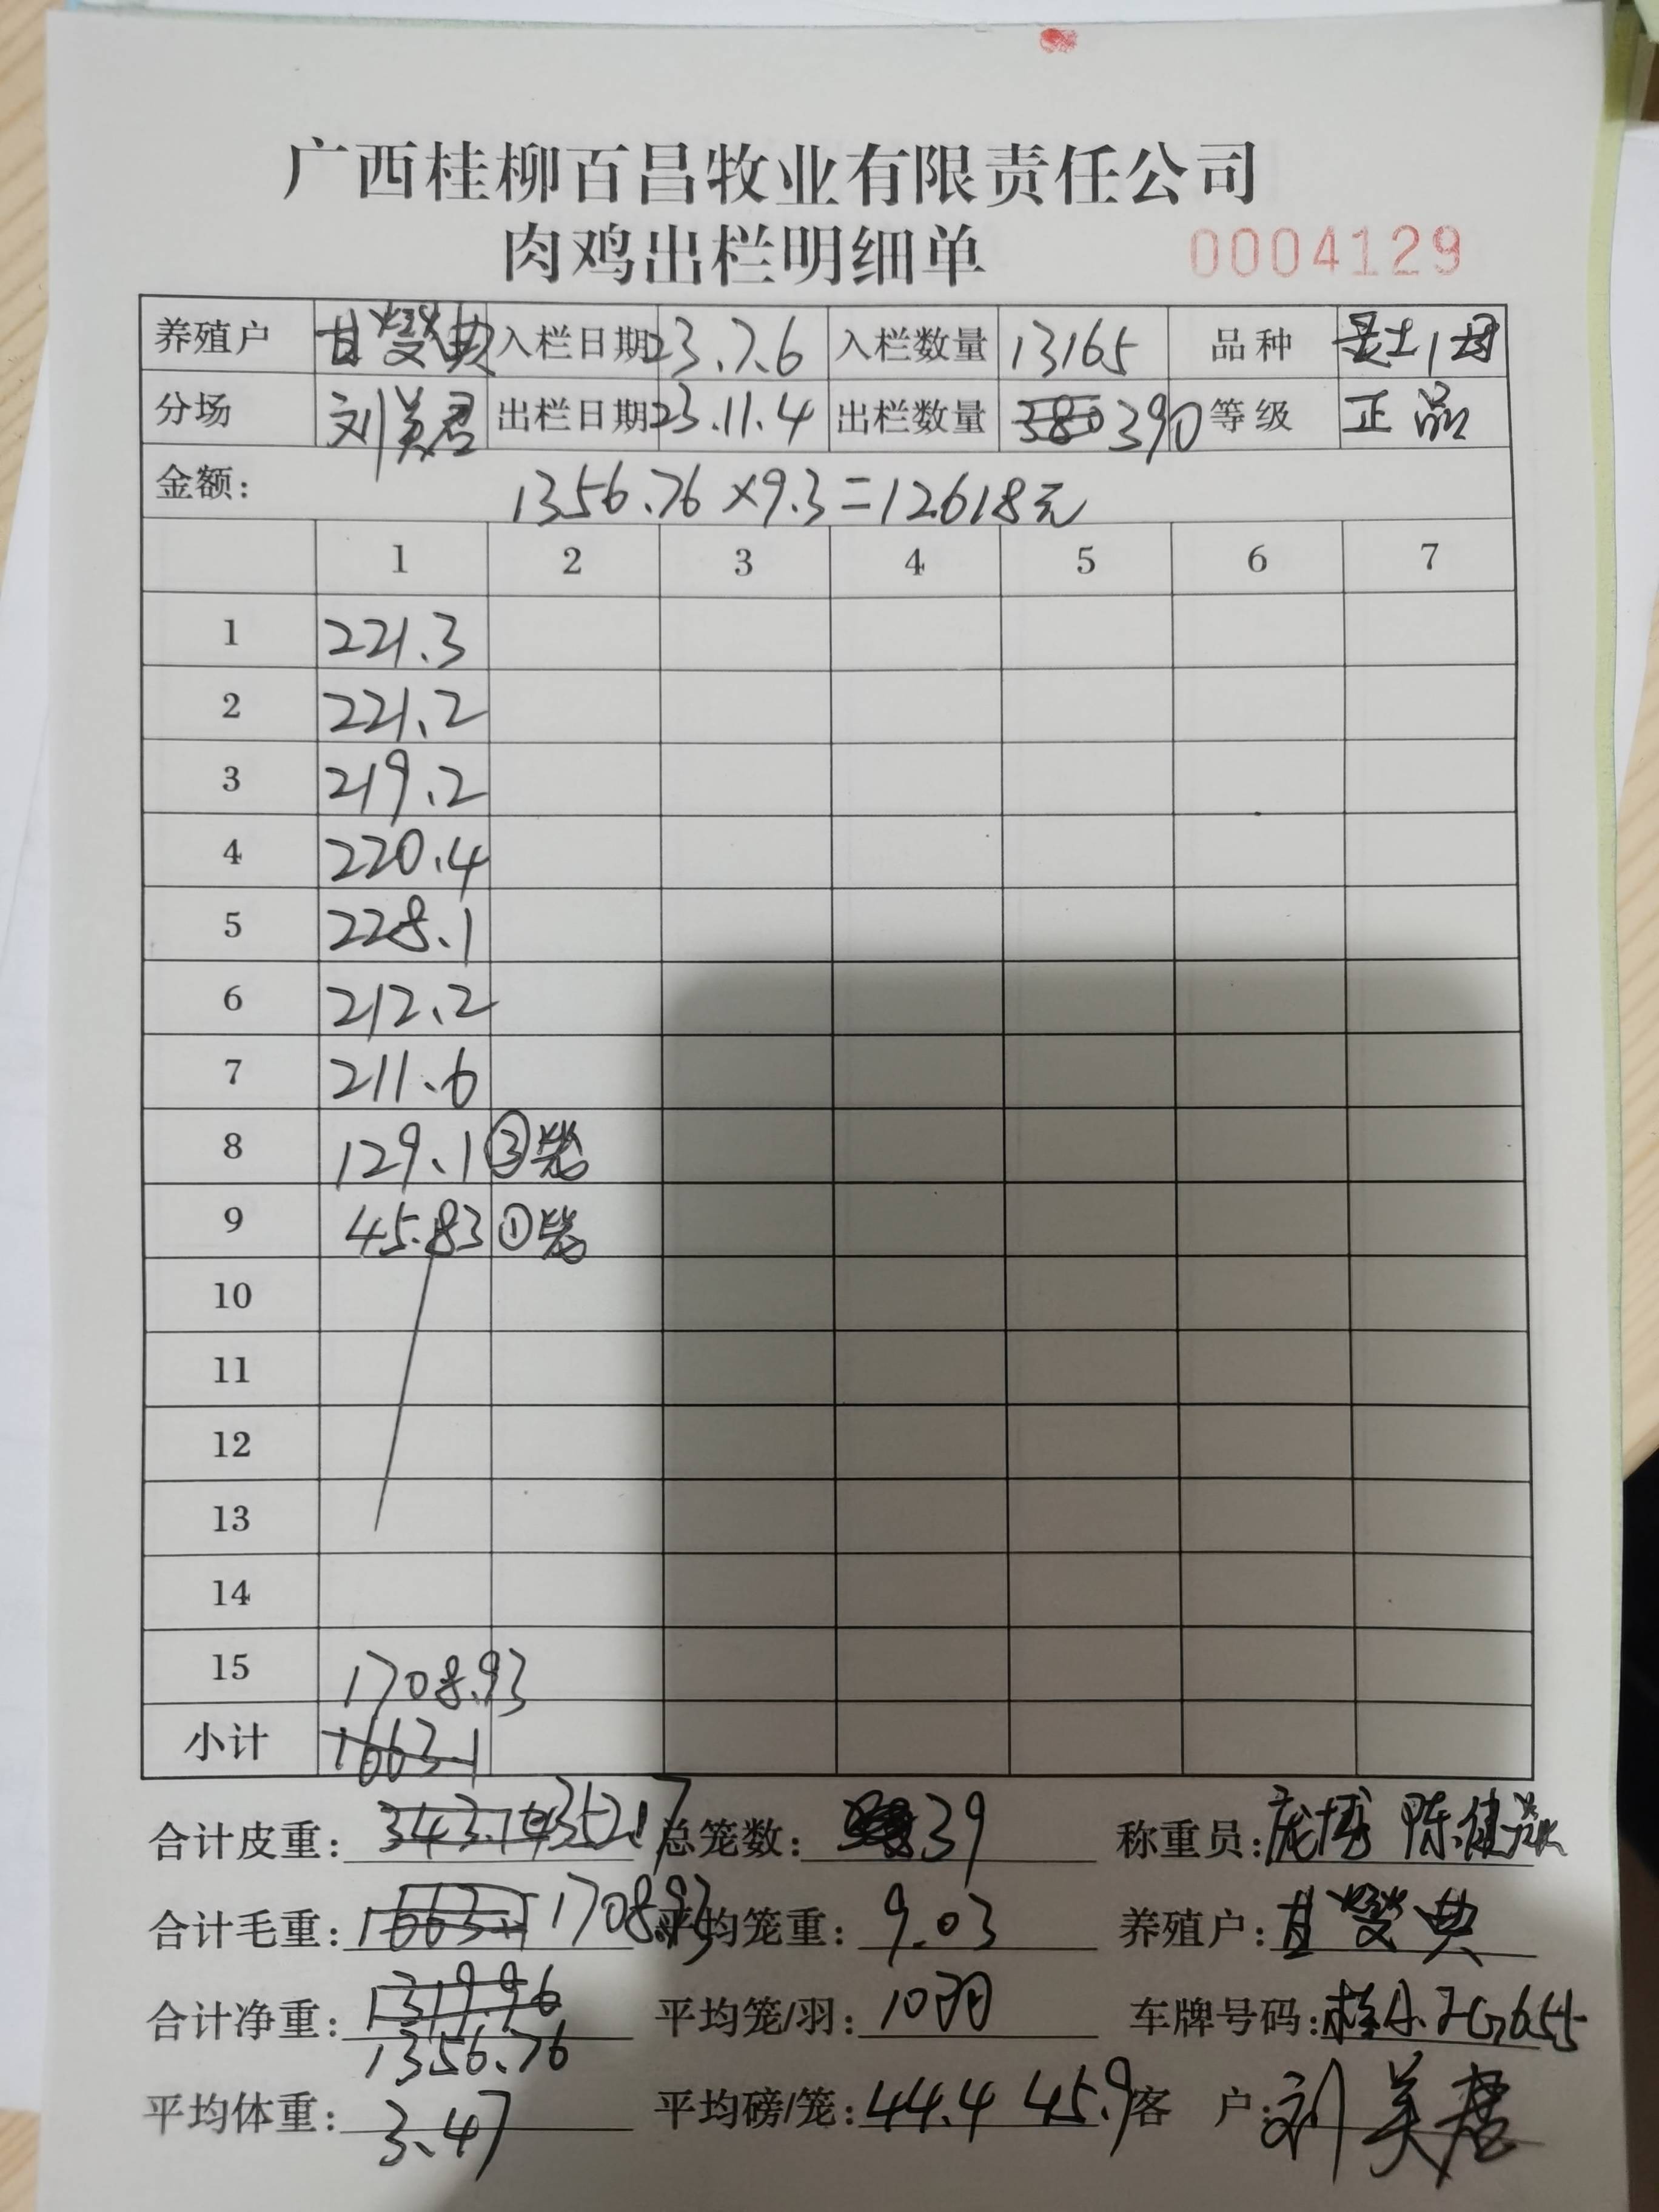 广西桂柳百昌牧业有限责任公司
肉鸡出栏明细单 0004129
养殖户 甘燮典 入栏日期 23.7.6 入栏数量 13165 品种 土1母
分场 刘美君 出栏日期 23.11.4 出栏数量 380 390 等级 正品
金额: 1356.76×9.3=12618元
1 2 3 4 5 6 7
1 221.3
2 221.2
3 219.2
4 220.4
5 228.1
6 212.2
7 211.6
8 129.1 ③笼
9 45.83 ①笼
10
11
12
13
14
15 1708.93
小计 1663.1
合计皮重: 343.14 352.17 总笼数: 39 称重员: 庞博 陈健
合计毛重: 1663.1 1708.93 平均笼重: 9.03 养殖户: 甘燮典
合计净重: 1319.96 平均笼/羽: 10羽 车牌号码: 桂A.
1356.76
平均体重: 3.47 平均磅/笼: 44.4 45.9 客 户: 刘美君